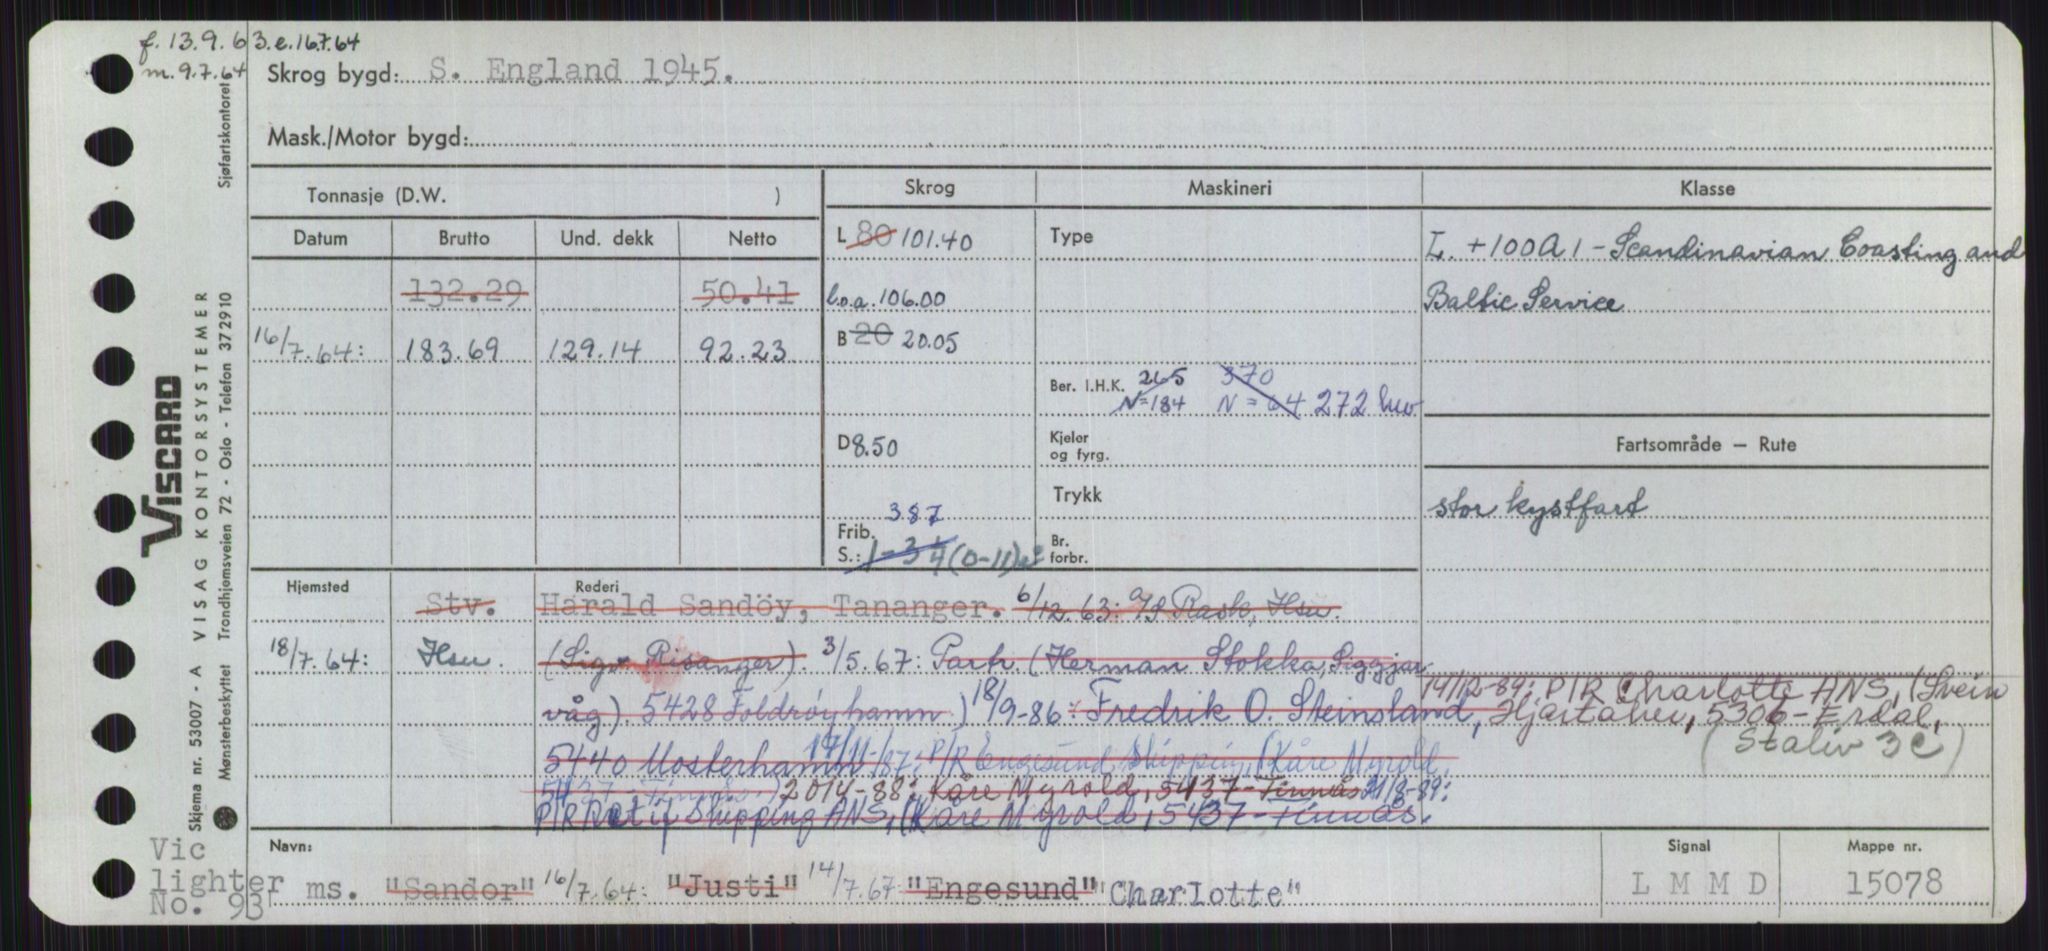 f. 13.9.63. e. 16.7.64
m. 9.7.64
Skrog bygd: S. England 1945.
Mask./Motor bygd:
Sjøfartskontoret
Tonnasje (D.W. )
Skrog
Maskineri
Klasse
Datum Brutto Und. dekk Netto
L 80 101.40
Type
L. +100A1 - Scandinavian Coasting and
132.29 50.41
l.o.a. 106.00
Baltic Service
16/7.64: 183.69 129.14 92.23
B 20 20.05
Ber. I.H.K. 265 370
N=184 N=64 272 hw
D 8.50
Kjeler
og fyrg.
Fartsområde — Rute
Trykk
stor kystfart
387
Frib.
S.: 1-3¼ (0-11)
Br.
forbr.
Hjemsted
Rederi
Stv. Harald Sandöy, Tananger. 6/12.63: A/S Rask, Hsu.
18/7.64: Hsu. (Sigv. Risanger). 3/5.67: Partr. (Herman Stokka, Siggjar-
våg). 5428 Foldrøyhamn) 18/9-86: Fredrik O. Steinsland,
14/12-89: P/R Charlotte ANS, (Svein
Hjartaker, 5306 - Erdal,
(Staliv 3c)
5440 Mosterhamn 17/11-87: P/R Engesund Shipping, (Kåre Myrold,
5437 - Finnås.) 20/4-88: Kåre Myrold, 5437 - Finnås 21/8-89:
P/R Shipping ANS, (Kåre Myrold, 5437 - Finnås.
Navn:
Vic
lighter
No. 93
ms. "Sandor" 16/7.64: "Justi" 14/7.67: "Engesund" "Charlotte"
Signal
L M M D
Mappe nr.
15078
VISCARD
VISAG KONTORSYSTEMER
Skjema nr. 53007 - A
Mønsterbeskyttet
Trondhjemsveien 72 - Oslo - Telefon 372910